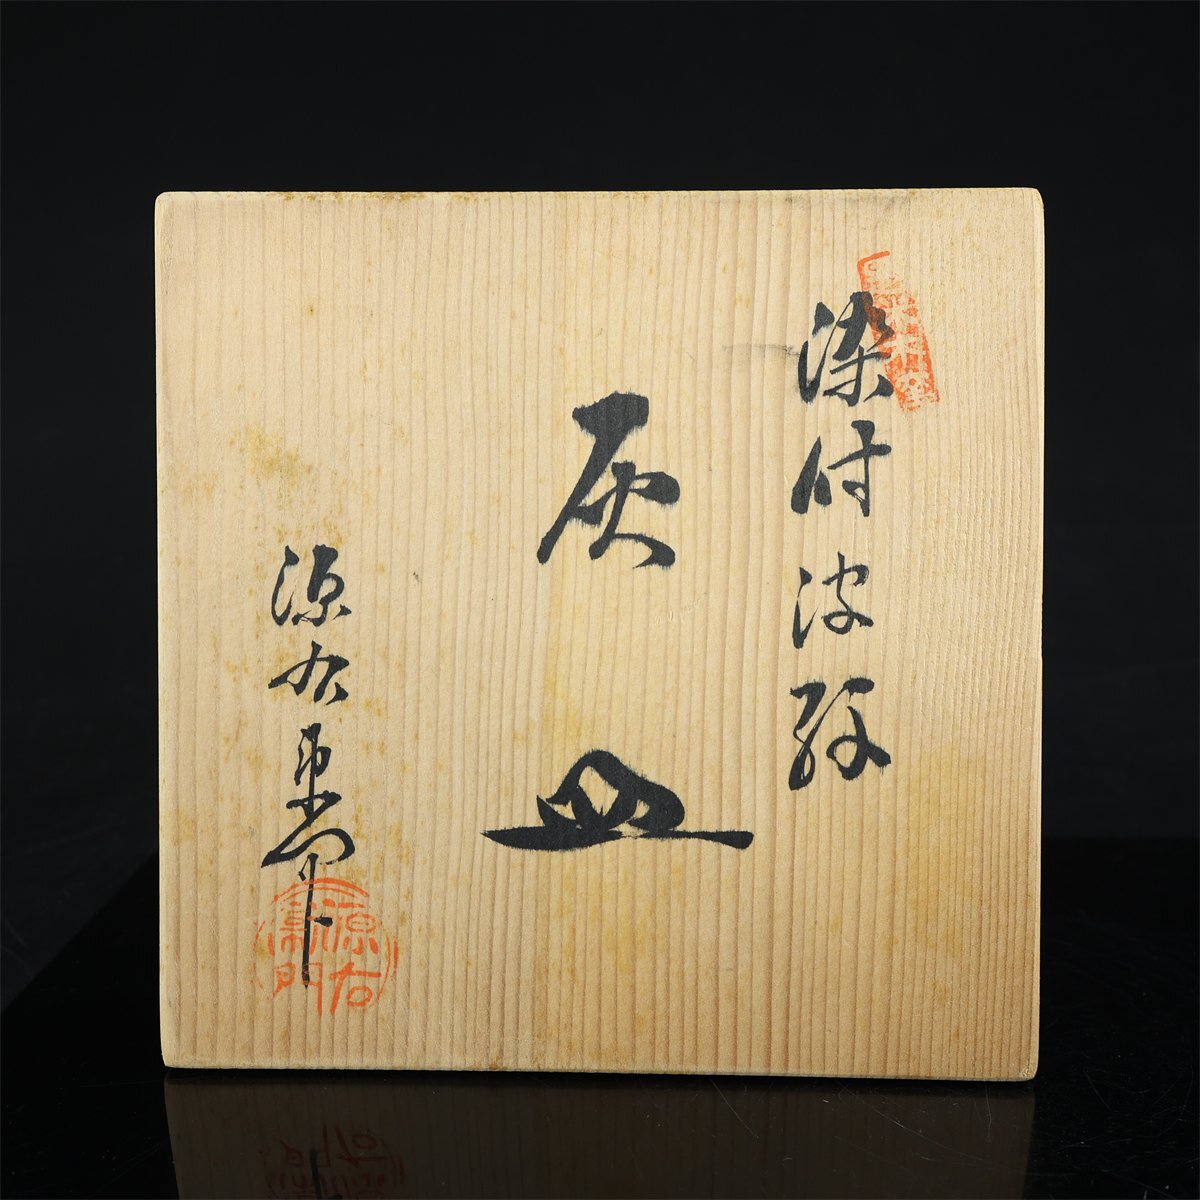 染付波絵
灰皿
源右衛門作
源右衛門